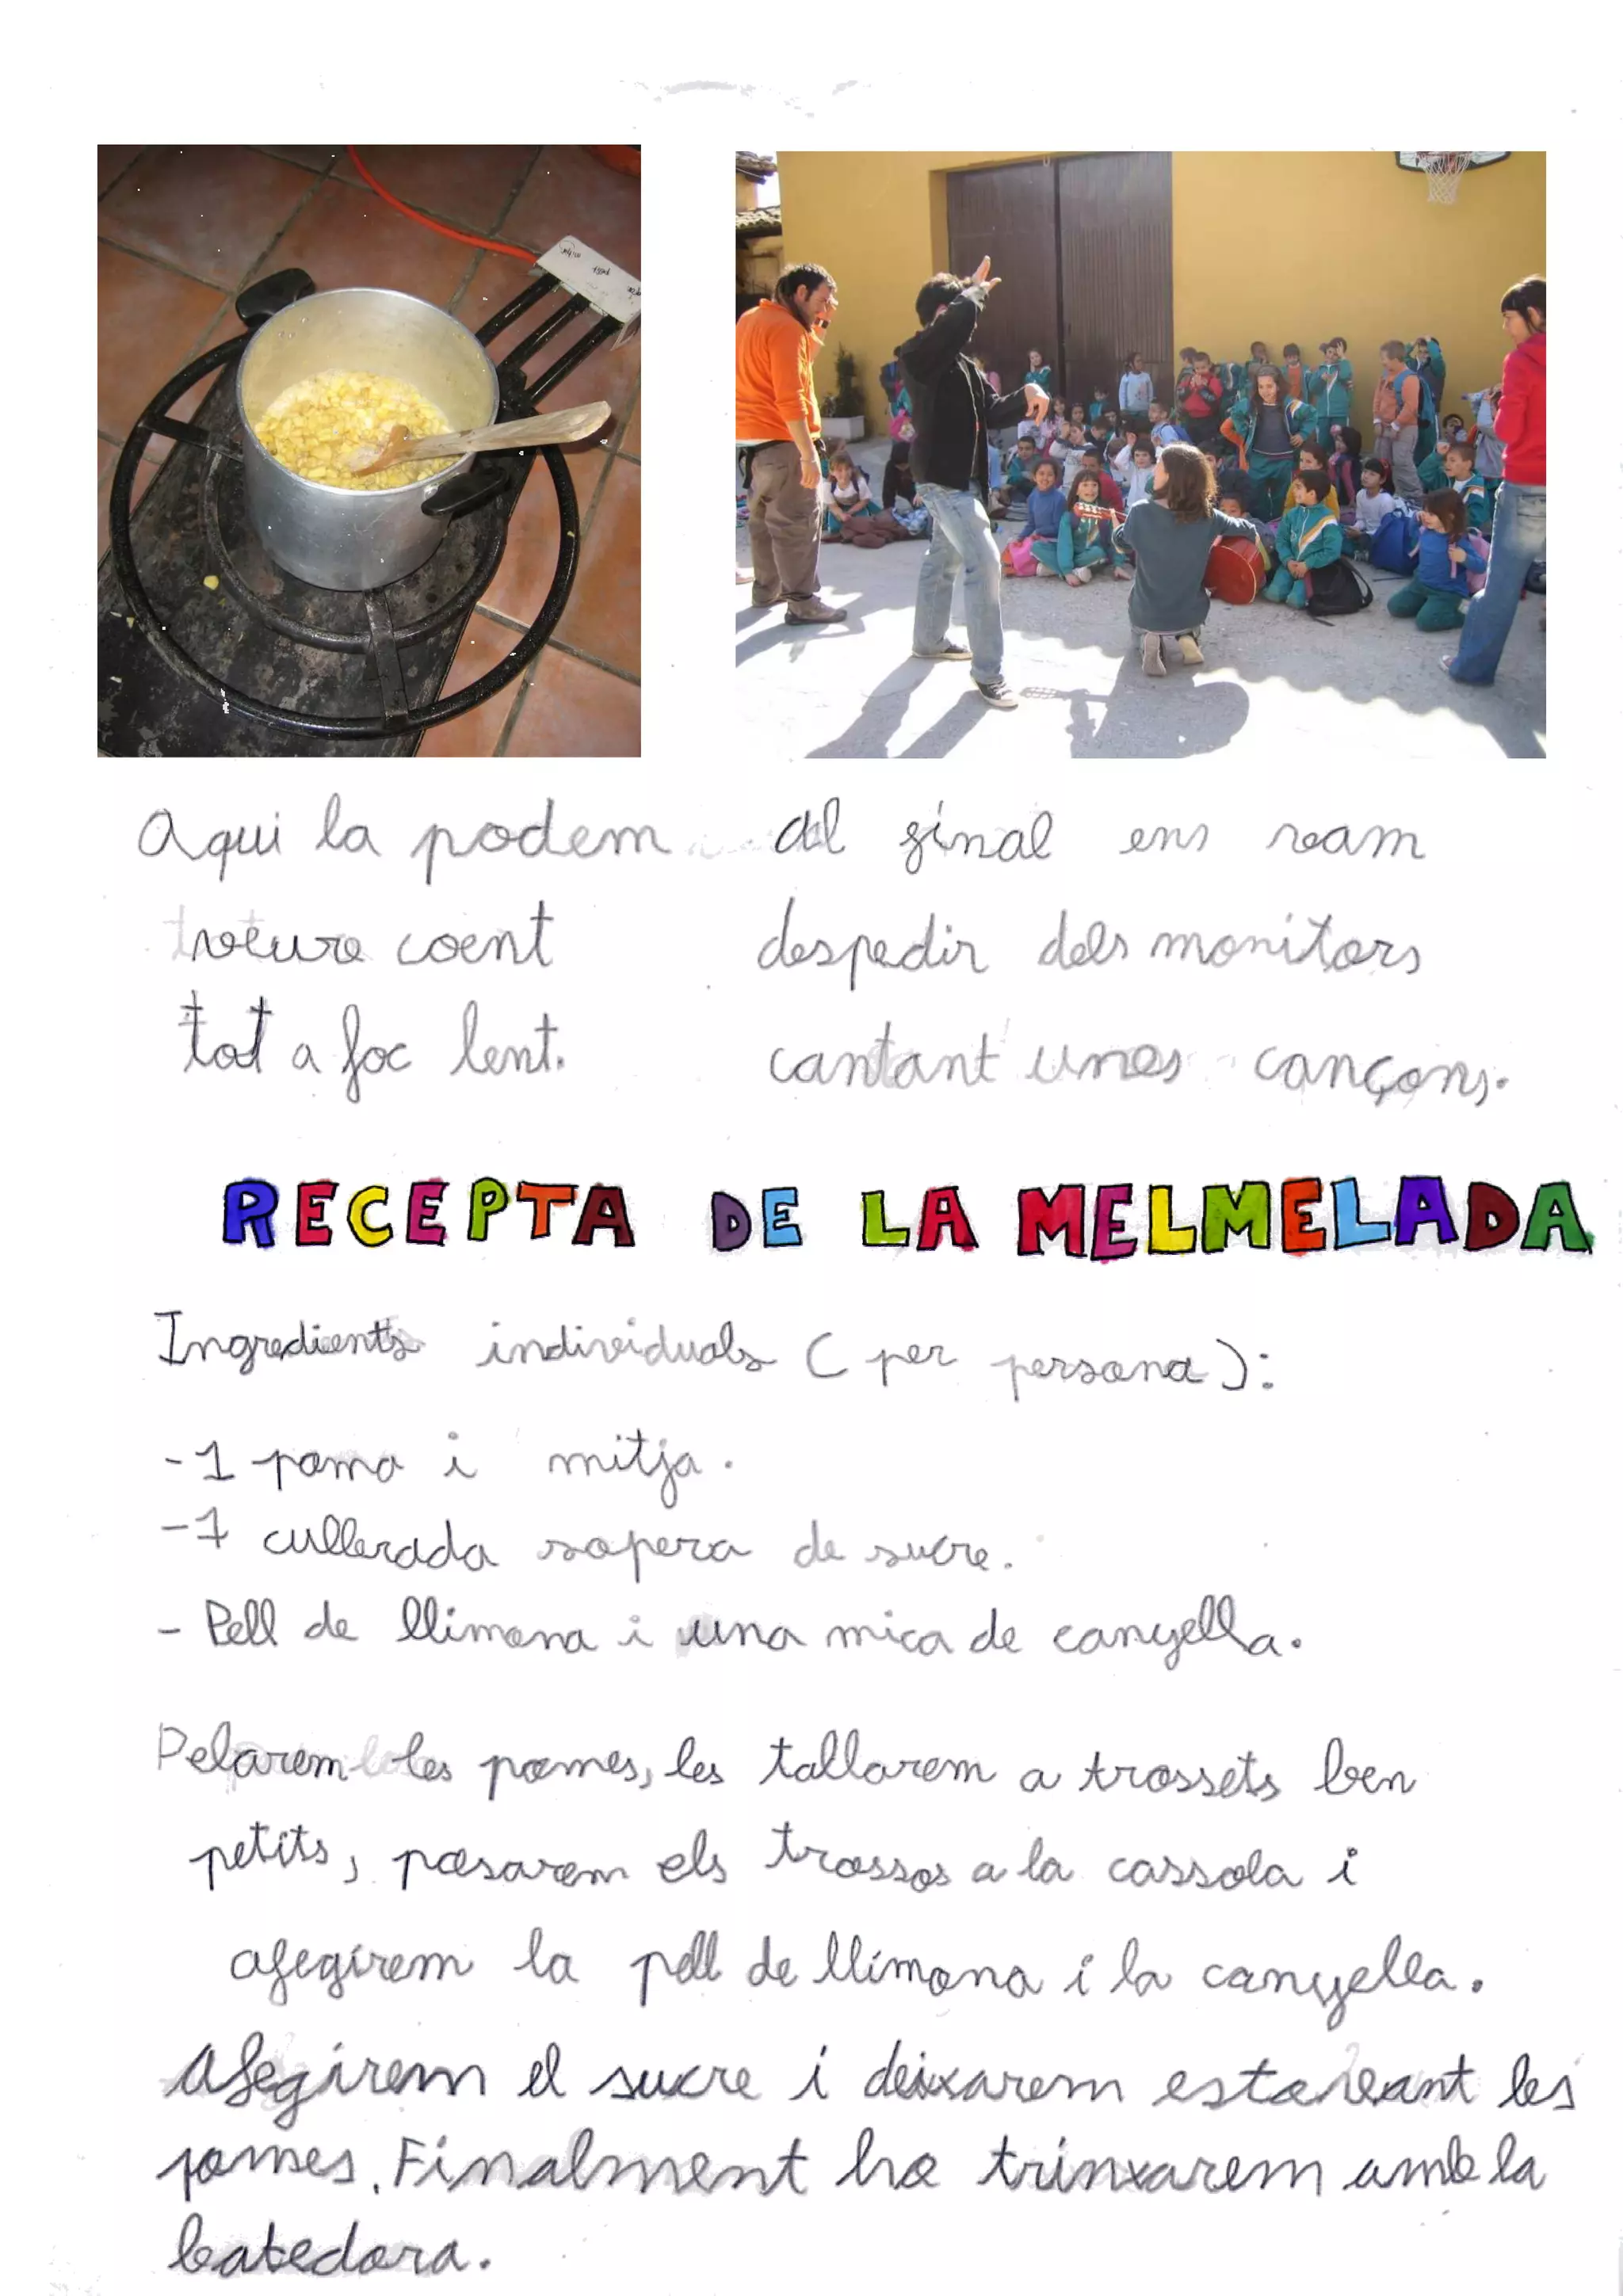 Aqui la podem
veure coent
tot a foc lent.
Al final ens vam
despedir dels monitors
cantant unes cançons.
RECEPTA DE LA MELMELADA
Ingredients individuals (per persona):
-1 poma i mitja.
-1 cullerada sopera de sucre.
- Pell de llimona i una mica de canyella.
Pelarem les pomes, les tallarem a trossets ben
petits, posarem els trossos a la cassola i
afegirem la pell de llimona i la canyella.
Afegirem el sucre i deixarem estovant les
pomes. Finalment ho trinxarem amb la
batedora.